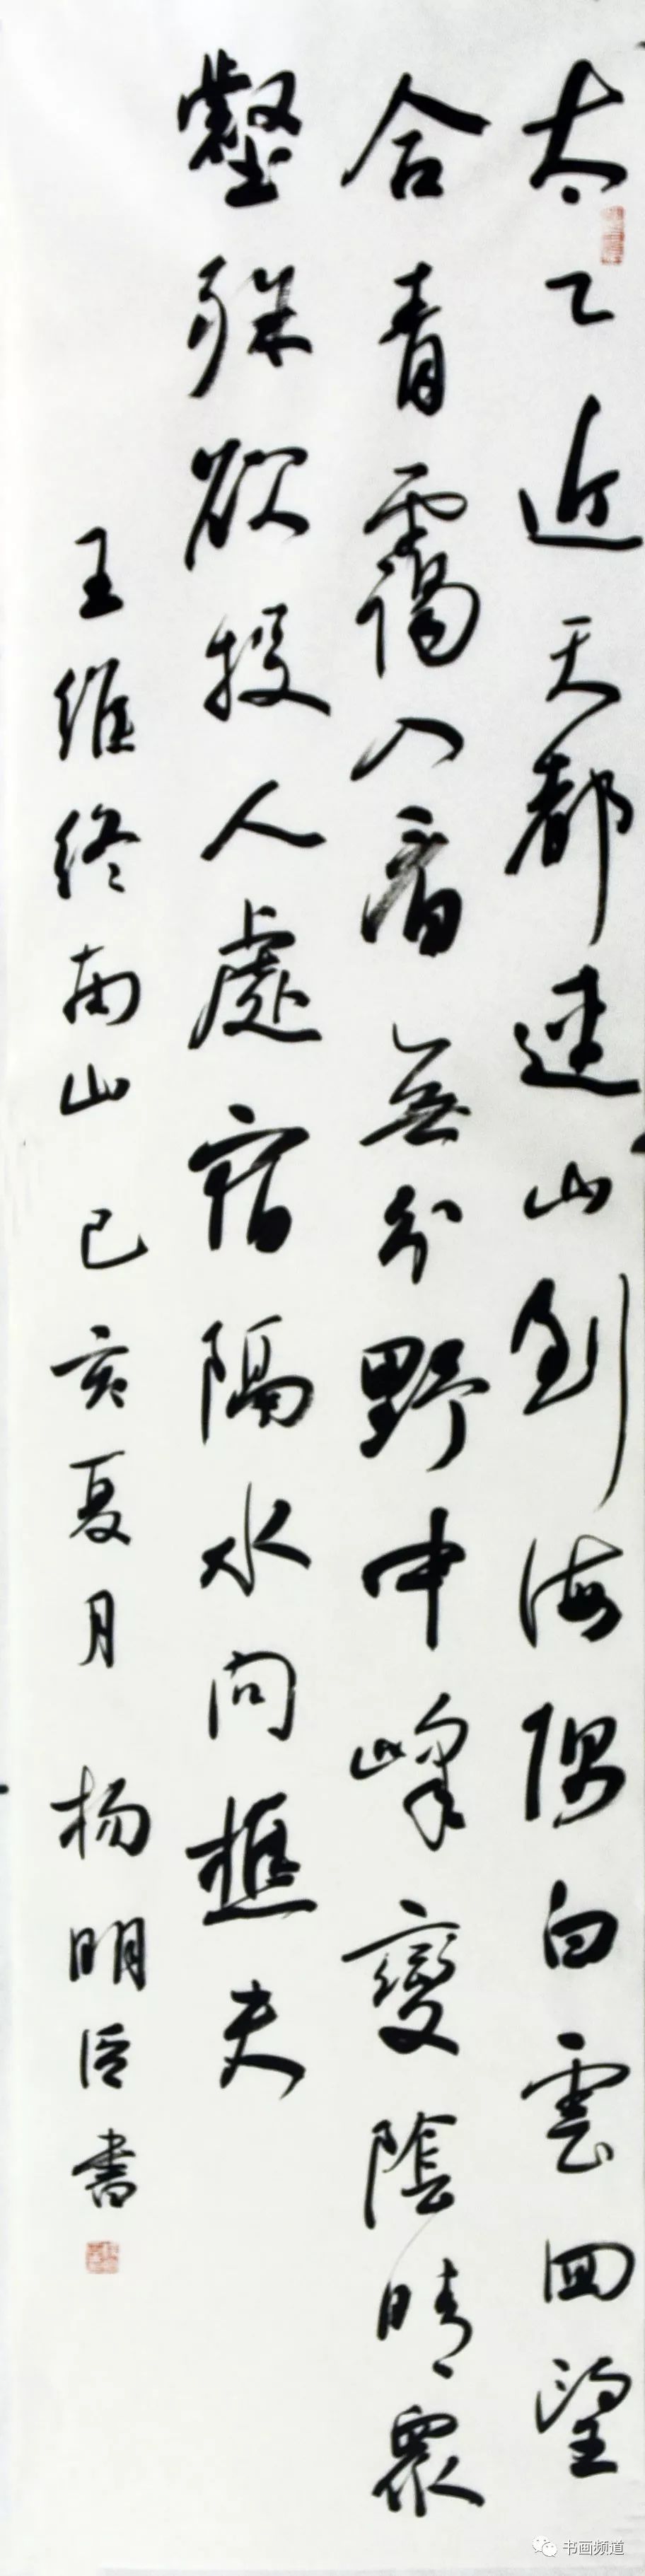 太乙近天都連山到海隅白雲回望
合青靄入看無分野中峰變陰晴衆
壑殊欲投人處宿隔水问樵夫
王維终南山 己亥夏月 杨明臣書
书画频道